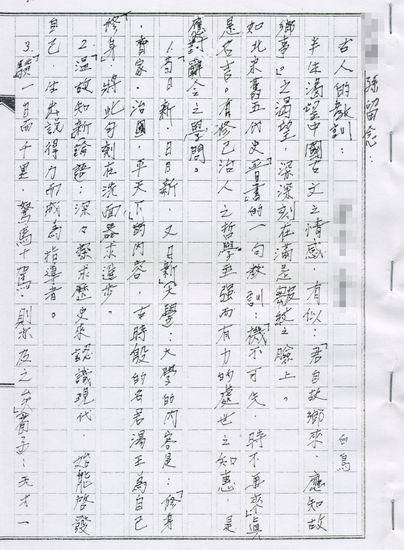 孫留念：
古人的教訓：
白鳥
半生渴望中國古文之情感，有似：「君自故鄉來，應知故
鄉事。」之渴望，深深刻在滿是皺紋之臉上。
如北宋舊五代史晋書的一句教訓：「機不可失，時不再來」真
是名言。有修己治人之哲學至强而有力的處世之知惠，是
應對辭令之學問。
1.苟日新，日日新，又日新」大學：大學的內容是：「修身
，齊家，治國，平天下」的內容，古時殷的名君湯王為自己
修身，將此句刻在洗面器求進步。
2.溫故知新」論語：深々探求歷史來認識現代，始能啓發
自己，生走說得力形成為指導者。
3.驥一日而千里，駑馬十駕，則亦及之矣」荀子：天才一